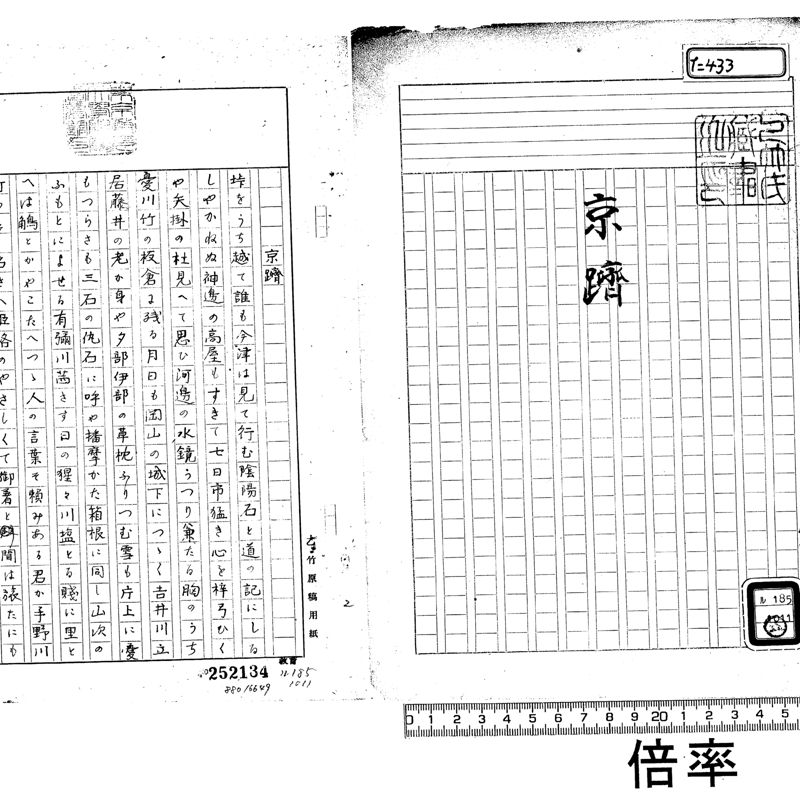 た433
京躋
ル185
1011
京躋
峠をうち越て誰も今津は見て行む陰陽石と道の記にしる
しやかねぬ神邊の高屋もすきて七日市猛き心を梓弓ひく
や矢掛の杜見へて思ひ河邊の水鏡うつり兼たる胸のうち
憂川竹の板倉に残る月日も岡山の城下につゝく吉井川立
居藤井の老か身や夕部伊部の草枕ふりつむ雪も片上に憂
もつらさも三石の仇石に呼や播摩かた箱根に同し山次の
ふもとによせる有彌川茜さす日の猩々川塩とる賤に里と
へは鵤とかやこたへつゝ人の言葉そ頼みある君か手野川
姫路のやさしくて御着と
間は旅たにも
竹原稿用紙
2
教育
252134
ル185
1011
88016649
0 1 2 3 4 5 6 7 8 9 20 1 2 3 4 5
倍率